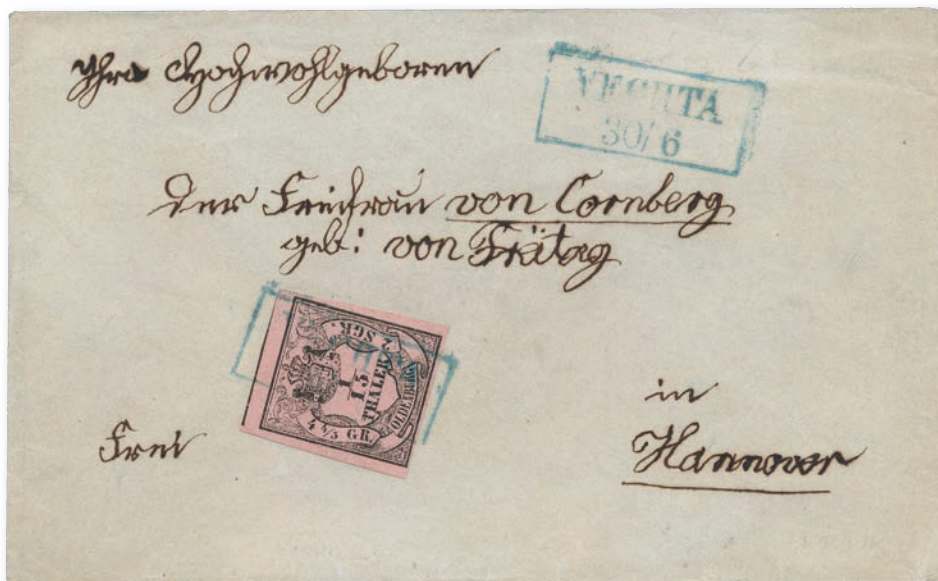 Ihro Hochwohlgeboren
VECHTA
30/6
der Freifrau von Cornberg
geb: von Frätag
2 SGR.
1
15
THALER
OLDENBURG
4 4/5 GR.
in
Frei
Hannover